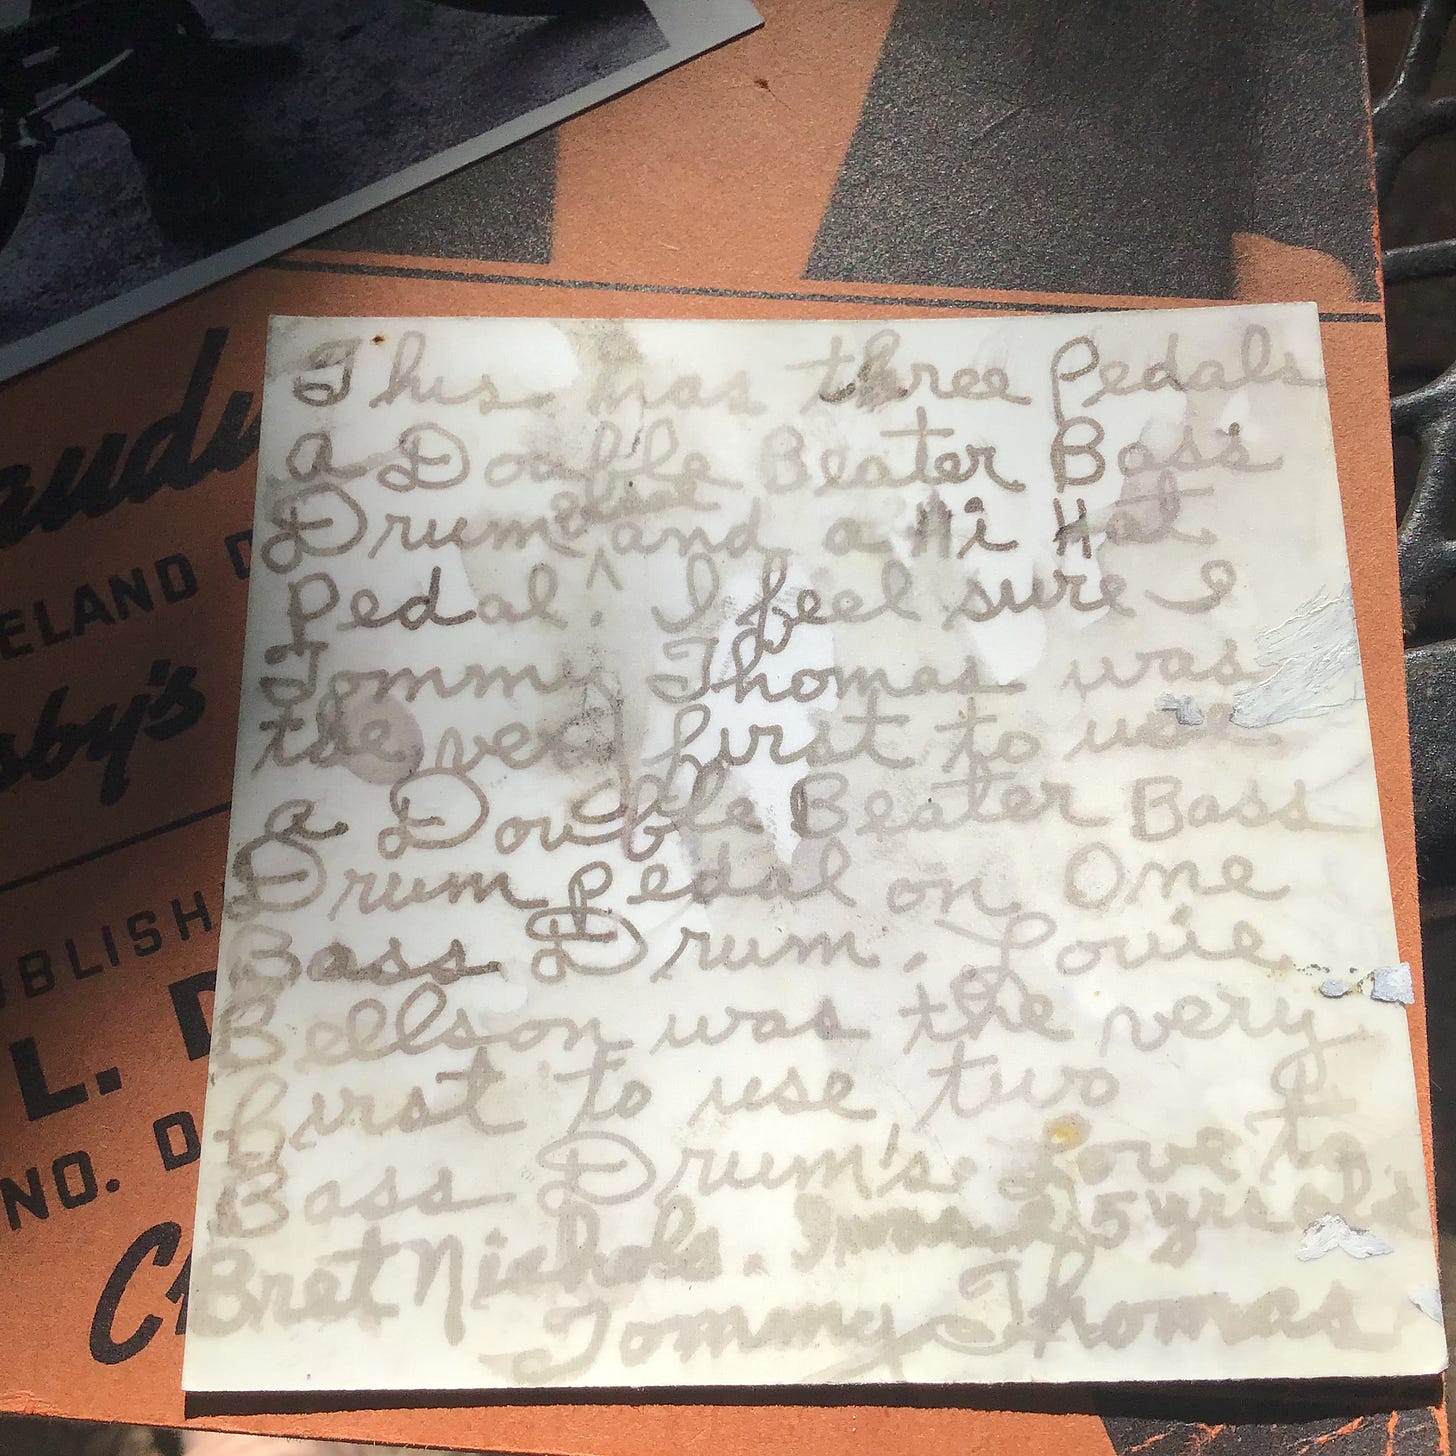 This has three Pedals
a Double Beater Bass
Drum and a Hi Hat
Pedal. I feel sure I
Tommy Thomas was
the very first to use
a Double Beater Bass
Drum pedal on One
Bass Drum. Louie
Bellson was the very
first to use two
Bass Drum's. Love to
Bret Nichols. 5 yrs old
Tommy Thomas
ELAND
sby's
UBLISH
L. D
NO. D
C